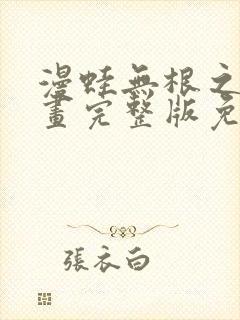 漫蛙無根之
畫完整版免
張衣白